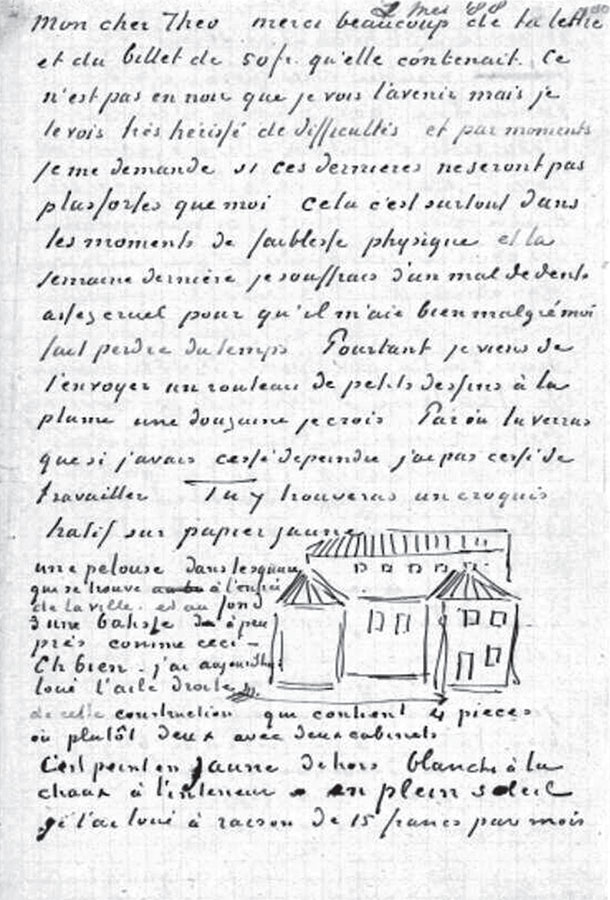 mai 88
Mon cher Theo merci beaucoup de ta lettre
et du billet de 50 fr. qu'elle contenait. Ce
n'est pas en noir que je vois l'avenir mais je
le vois très hérissé de difficultés et par moments
je me demande si ces dernières ne seront pas
plus fortes que moi cela c'est surtout dans
les moments de faiblesse physique et la
semaine dernière je souffrais d'un mal de dents
assez cruel pour qu'il m'aie bien malgré moi
fait perdre du temps Pourtant je viens de
t'envoyer un rouleau de petits dessins à la
plume une douzaine je crois Par où tu verras
que si j'avais cessé de peindre j'ai pas cessé de
travailler Tu y trouveras un croquis
hatif sur papier jaune
une pelouse dans le square
qui se trouve à l'entrée
de la ville. et au fond
une batisse à peu
près comme ceci –
Eh bien – j'ai aujourd'hui
loué l'aile droite
de cette construction qui contient 4 pièces
ou plutôt deux avec deux cabinets
C'est peint en jaune dehors blanchi à la
chaux à l'intérieur en plein soleil
je l'ai loué à raison de 15 francs par mois